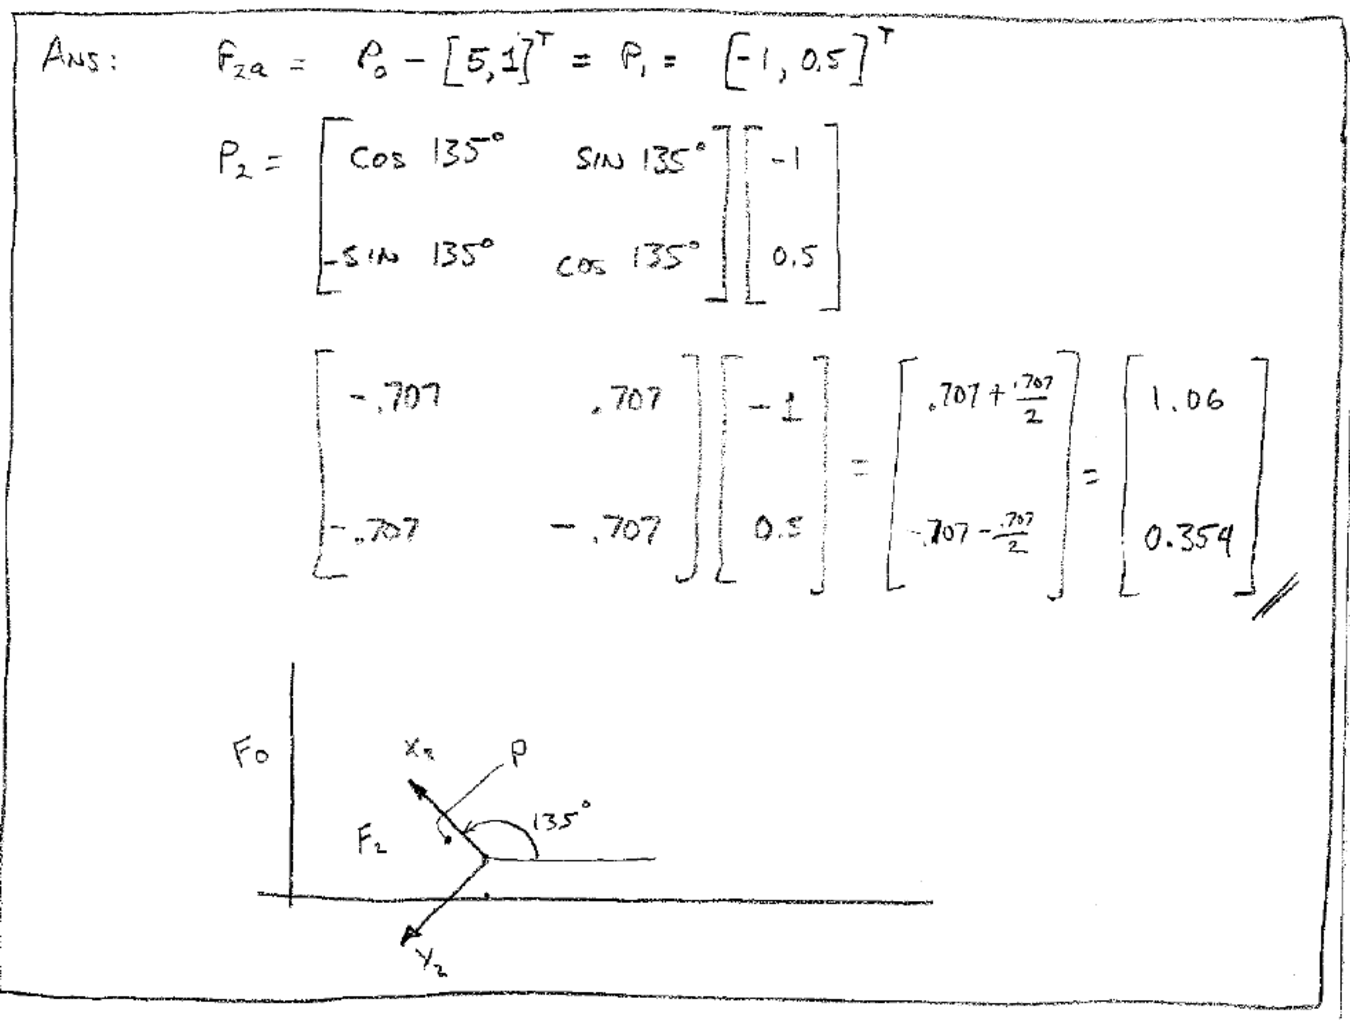 ANS: F₂ₐ = P₀ - [5,1]ᵀ = P₁ = [-1, 0.5]ᵀ
P₂ = [cos 135° SIN 135°] [-1]
[-SIN 135° cos 135°] [0.5]
[-.707 .707] [-1] = [.707 + .707/2] = [1.06]
[-.707 -.707] [0.5] [-.707 - .707/2] [0.354]
F₀
X₂ P
135°
F₂
Y₂